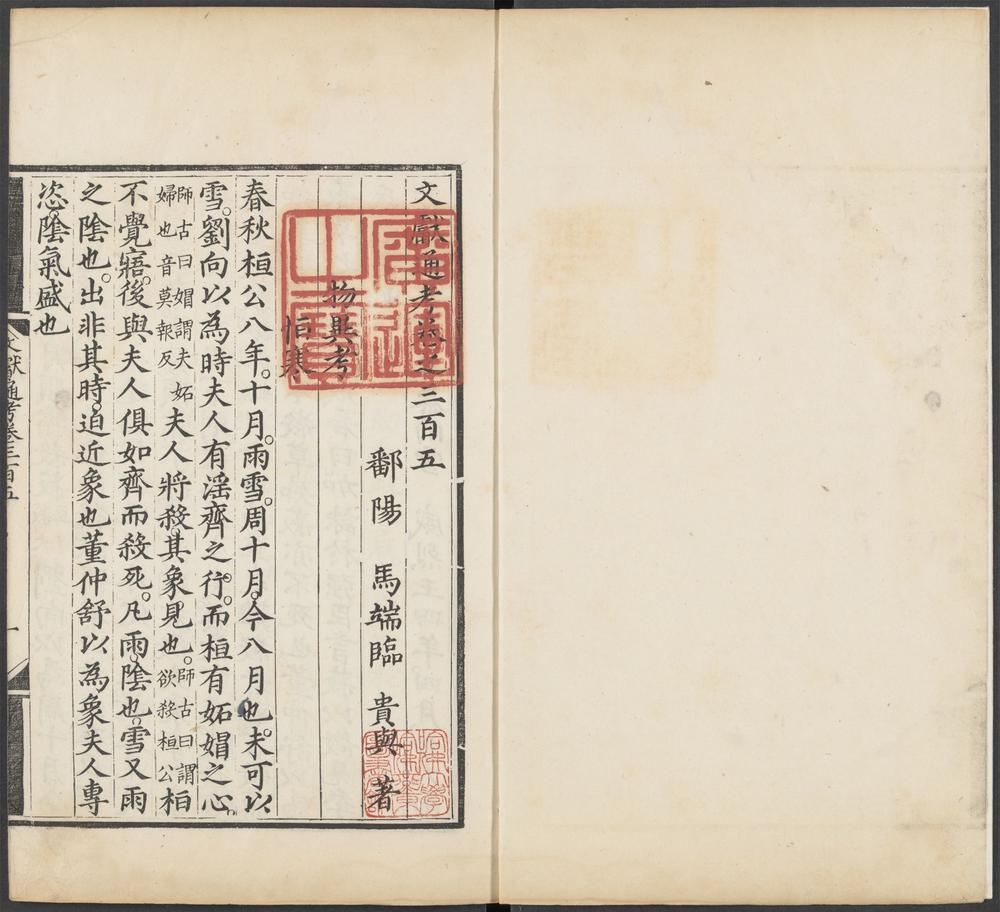 文獻通考卷之三百五
鄱陽 馬端臨 貴與 著
物異考
恒寒
春秋桓公八年。十月。雨雪。周十月。今八月也。未可以
雪。劉向以為時夫人有淫齊之行。而桓有妬媢之心。
師古曰媢謂夫妬
婦也音莫報反
夫人將殺。其象見也。
師古曰謂
欲殺桓公
桓
不覺寤。後與夫人俱如齊而殺死。凡雨。陰也。雪又雨
之陰也。出非其時。迫近象也董仲舒以為象夫人專
恣陰氣盛也
文獻通考卷三百五
一